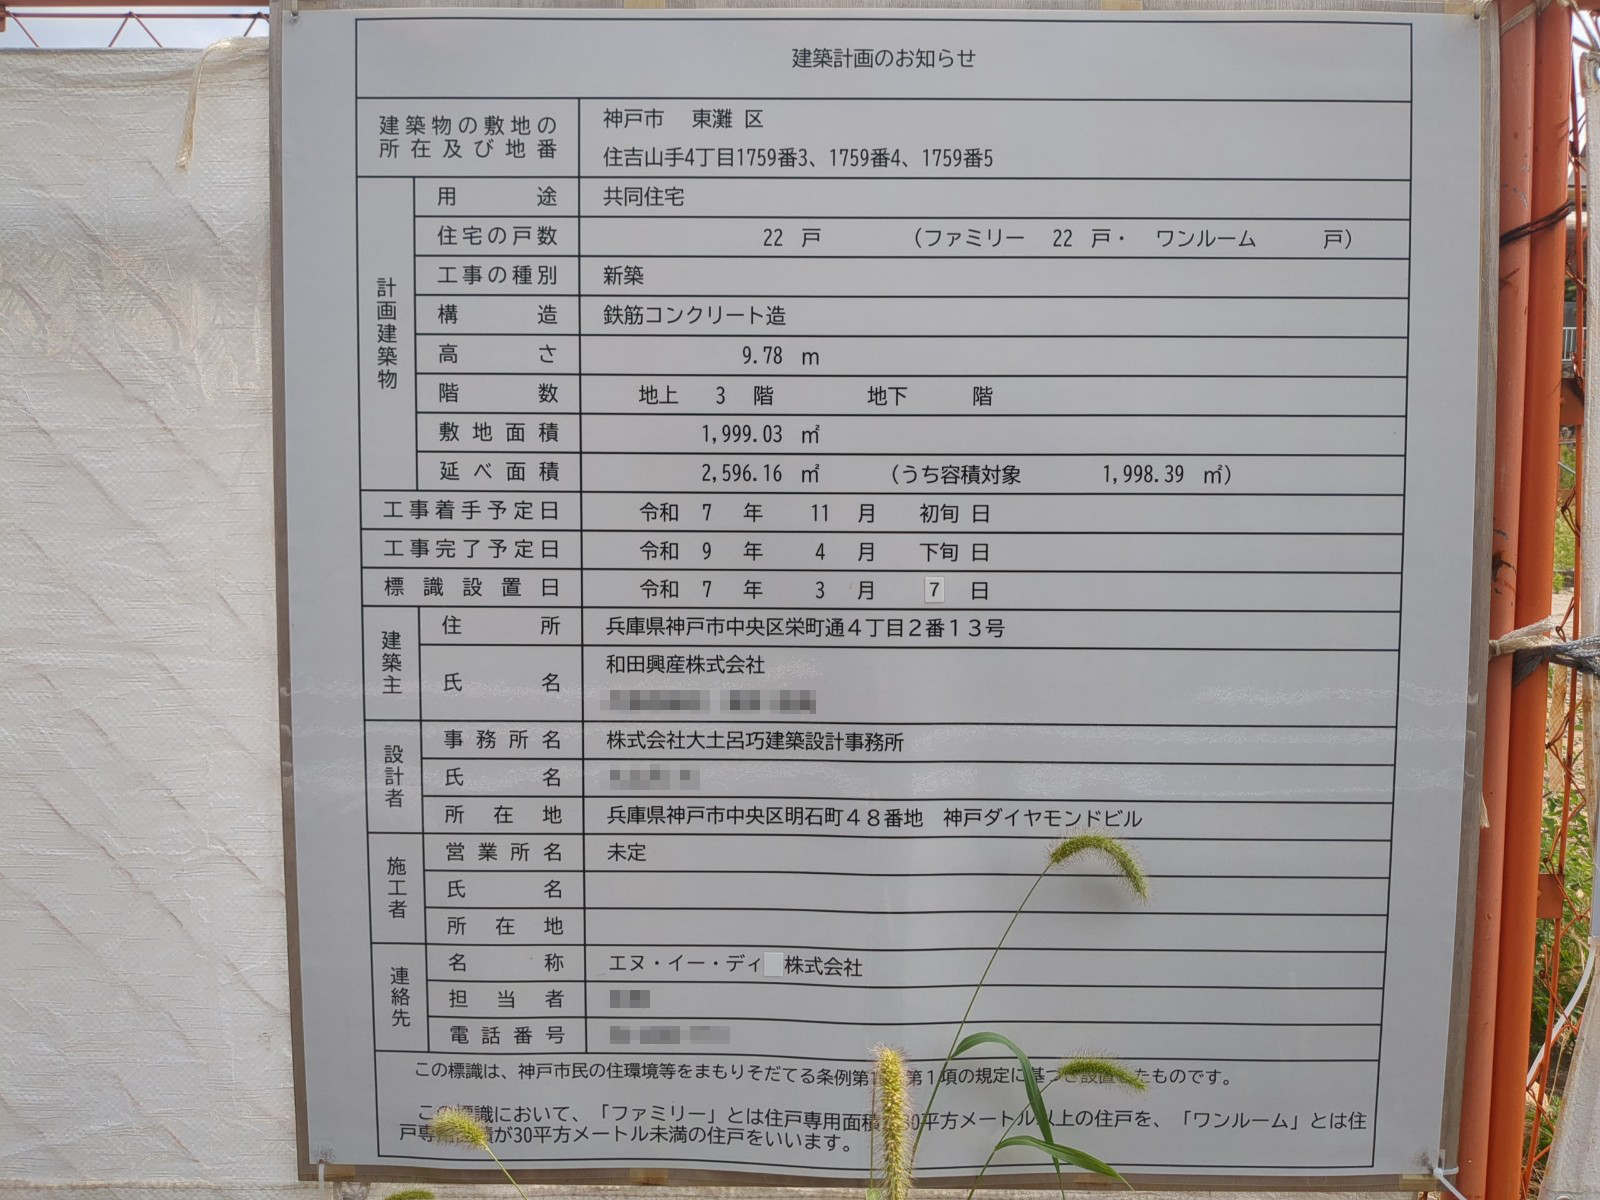 建築計画のお知らせ
建築物の敷地の
所在及び地番
神戸市 東灘 区
住吉山手4丁目1759番3、1759番4、1759番5
計画建築物
用途 共同住宅
住宅の戸数 22 戸 (ファミリー 22 戸・ ワンルーム 戸)
工事の種別 新築
構造 鉄筋コンクリート造
高さ 9.78 m
階数 地上 3 階 地下 階
敷地面積 1,999.03 ㎡
延べ面積 2,596.16 ㎡ (うち容積対象 1,998.39 ㎡)
工事着手予定日 令和 7 年 11 月 初旬 日
工事完了予定日 令和 9 年 4 月 下旬 日
標識設置日 令和 7 年 3 月 7 日
建築主
住所 兵庫県神戸市中央区栄町通4丁目2番13号
氏名 和田興産株式会社
設計者
事務所名 株式会社大土呂巧建築設計事務所
氏名
所在地 兵庫県神戸市中央区明石町48番地 神戸ダイヤモンドビル
施工者
営業所名 未定
氏名
所在地
連絡先
名称 エヌ・イー・ディ 株式会社
担当者
電話番号
この標識は、神戸市民の住環境等をまもりそだてる条例第1 第1項の規定に基づき設置したものです。
この標識において、「ファミリー」とは住戸専用面積が30平方メートル以上の住戸を、「ワンルーム」とは住
戸専用面積が30平方メートル未満の住戸をいいます。